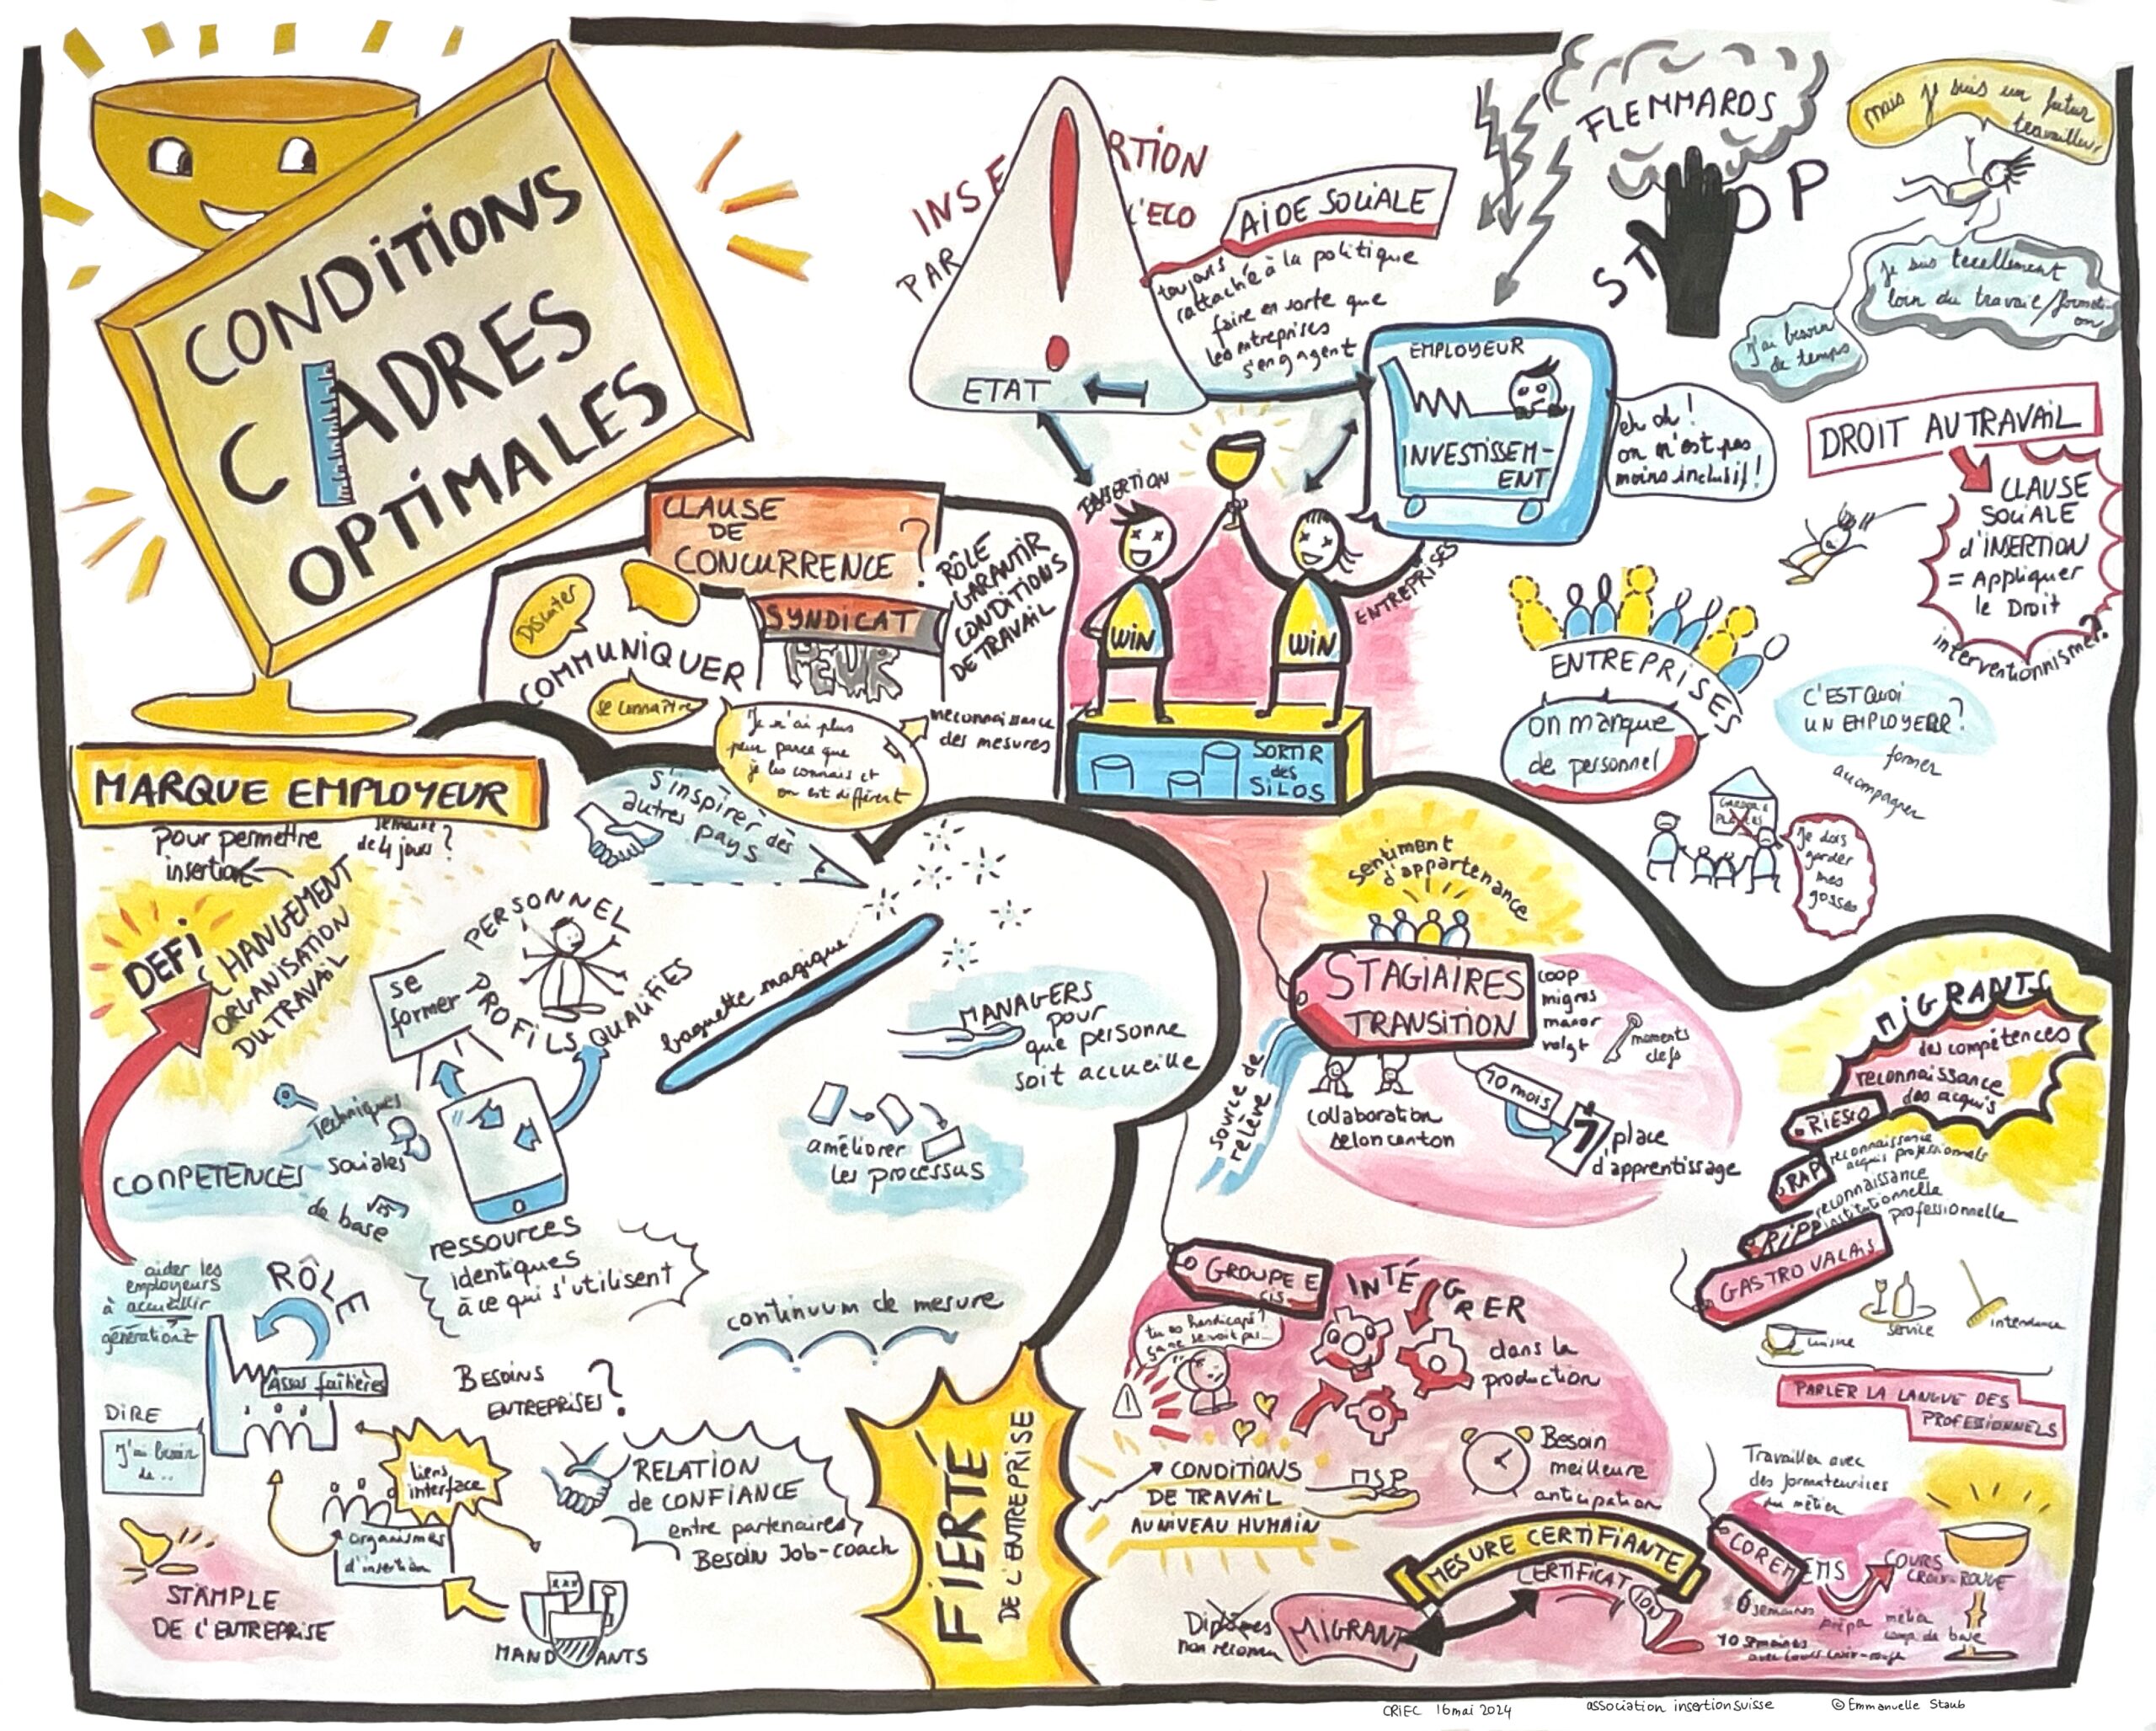 CONDITIONS
CADRES
OPTIMALES
INSERTION
PAR L'ECO
ETAT
AIDE SOCIALE
toujours
rattaché à la politique
faire en sorte que
les entreprises
s'engagent
FLEMMARDS
STOP
mais je suis un futur
travailleur
je suis tecellement
loin du travail/formati-
on
j'ai besoin
de temps
EMPLOYEUR
INVESTISSEM-
ENT
eh oh!
on n'est pas
moins inclusif!
DROIT AU TRAVAIL
CLAUSE
SOCIALE
d'INSERTION
= Appliquer
le Droit
interventionnisme?
CLAUSE
DE
CONCURRENCE ?
SYNDICAT
PEUR
RÔLE
GARANTIR
CONDITIONS
DE TRAVAIL
Discuter
COMMUNIQUER
se connaître
Je n'ai plus
peur parce que
je les connais et
on est différent
méconnaissance
des mesures
INSERTION
ENTREPRISES
WIN
WIN
SORTIR
des
SILOS
ENTREPRISES
on manque
de personnel
C'EST QUOI
UN EMPLOYEUR?
former
accompagner
Je dois
garder
mes
gosses
MARQUE EMPLOYEUR
pour permettre
insertion
semaine
de 4 jours?
DEFI
CHANGEMENT
ORGANISATION
DU TRAVAIL
S'inspirer des
autres pays
baguette magique
se
former
PERSONNEL
PROFILS QUALIFIÉS
MANAGERS
pour
que personne
soit accueille
améliorer
les processus
COMPETENCES
Techniques
sociales
de base
ressources
identiques
à ce qui s'utilisent
continuum de mesure
aider les
employeurs
à accueillir
génération Z
RÔLE
Assos faîtières
DIRE
J'ai besoin
de..
BESOINS
ENTREPRISES?
liens
interface
organismes
d'insertion
RELATION
de CONFIANCE
entre partenaires
Besoin Job-coach
STÄMPLE
DE L'ENTREPRISE
MANDANTS
FIERTÉ
DE L'ENTREPRISE
sentiment
d'appartenance
STAGIAIRES
TRANSITION
coop
migros
manor
voigt
moments
clefs
source de
relève
collaboration
selon canton
10 mois
7 place
d'apprentissage
MIGRANTS
des compétences
reconnaissance
des acquis
RIESCO
RAP
reconnaissance
acquis professionnels
RIPP
reconnaissance
institutionnelle
professionnelle
GASTROVALAIS
cuisine
service
intendance
PARLER LA LANGUE DES
PROFESSIONNELS
GROUPE E
INTÉGRER
dans la
production
tu es handicapé?
ça ne se voit pas...
CONDITIONS
DE TRAVAIL
AU NIVEAU HUMAIN
MSP
Besoin
meilleure
anticipation
Travailler avec
des formateurices
du métier
MESURE CERTIFIANTE
CERTIFICATION
Diplômes
non reconnu
MIGRANT
COREM
EMS
6 semaines
prépa
COURS
CROIX-ROUGE
métier
10 semaines
CRIEC 16 mai 2024
association insertionsuisse
© Emmanuelle Staub